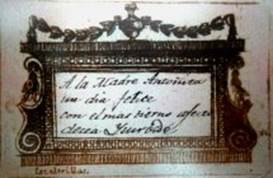 A la Madre Antonia
un dia felice
con el mas tierno afecto
desea